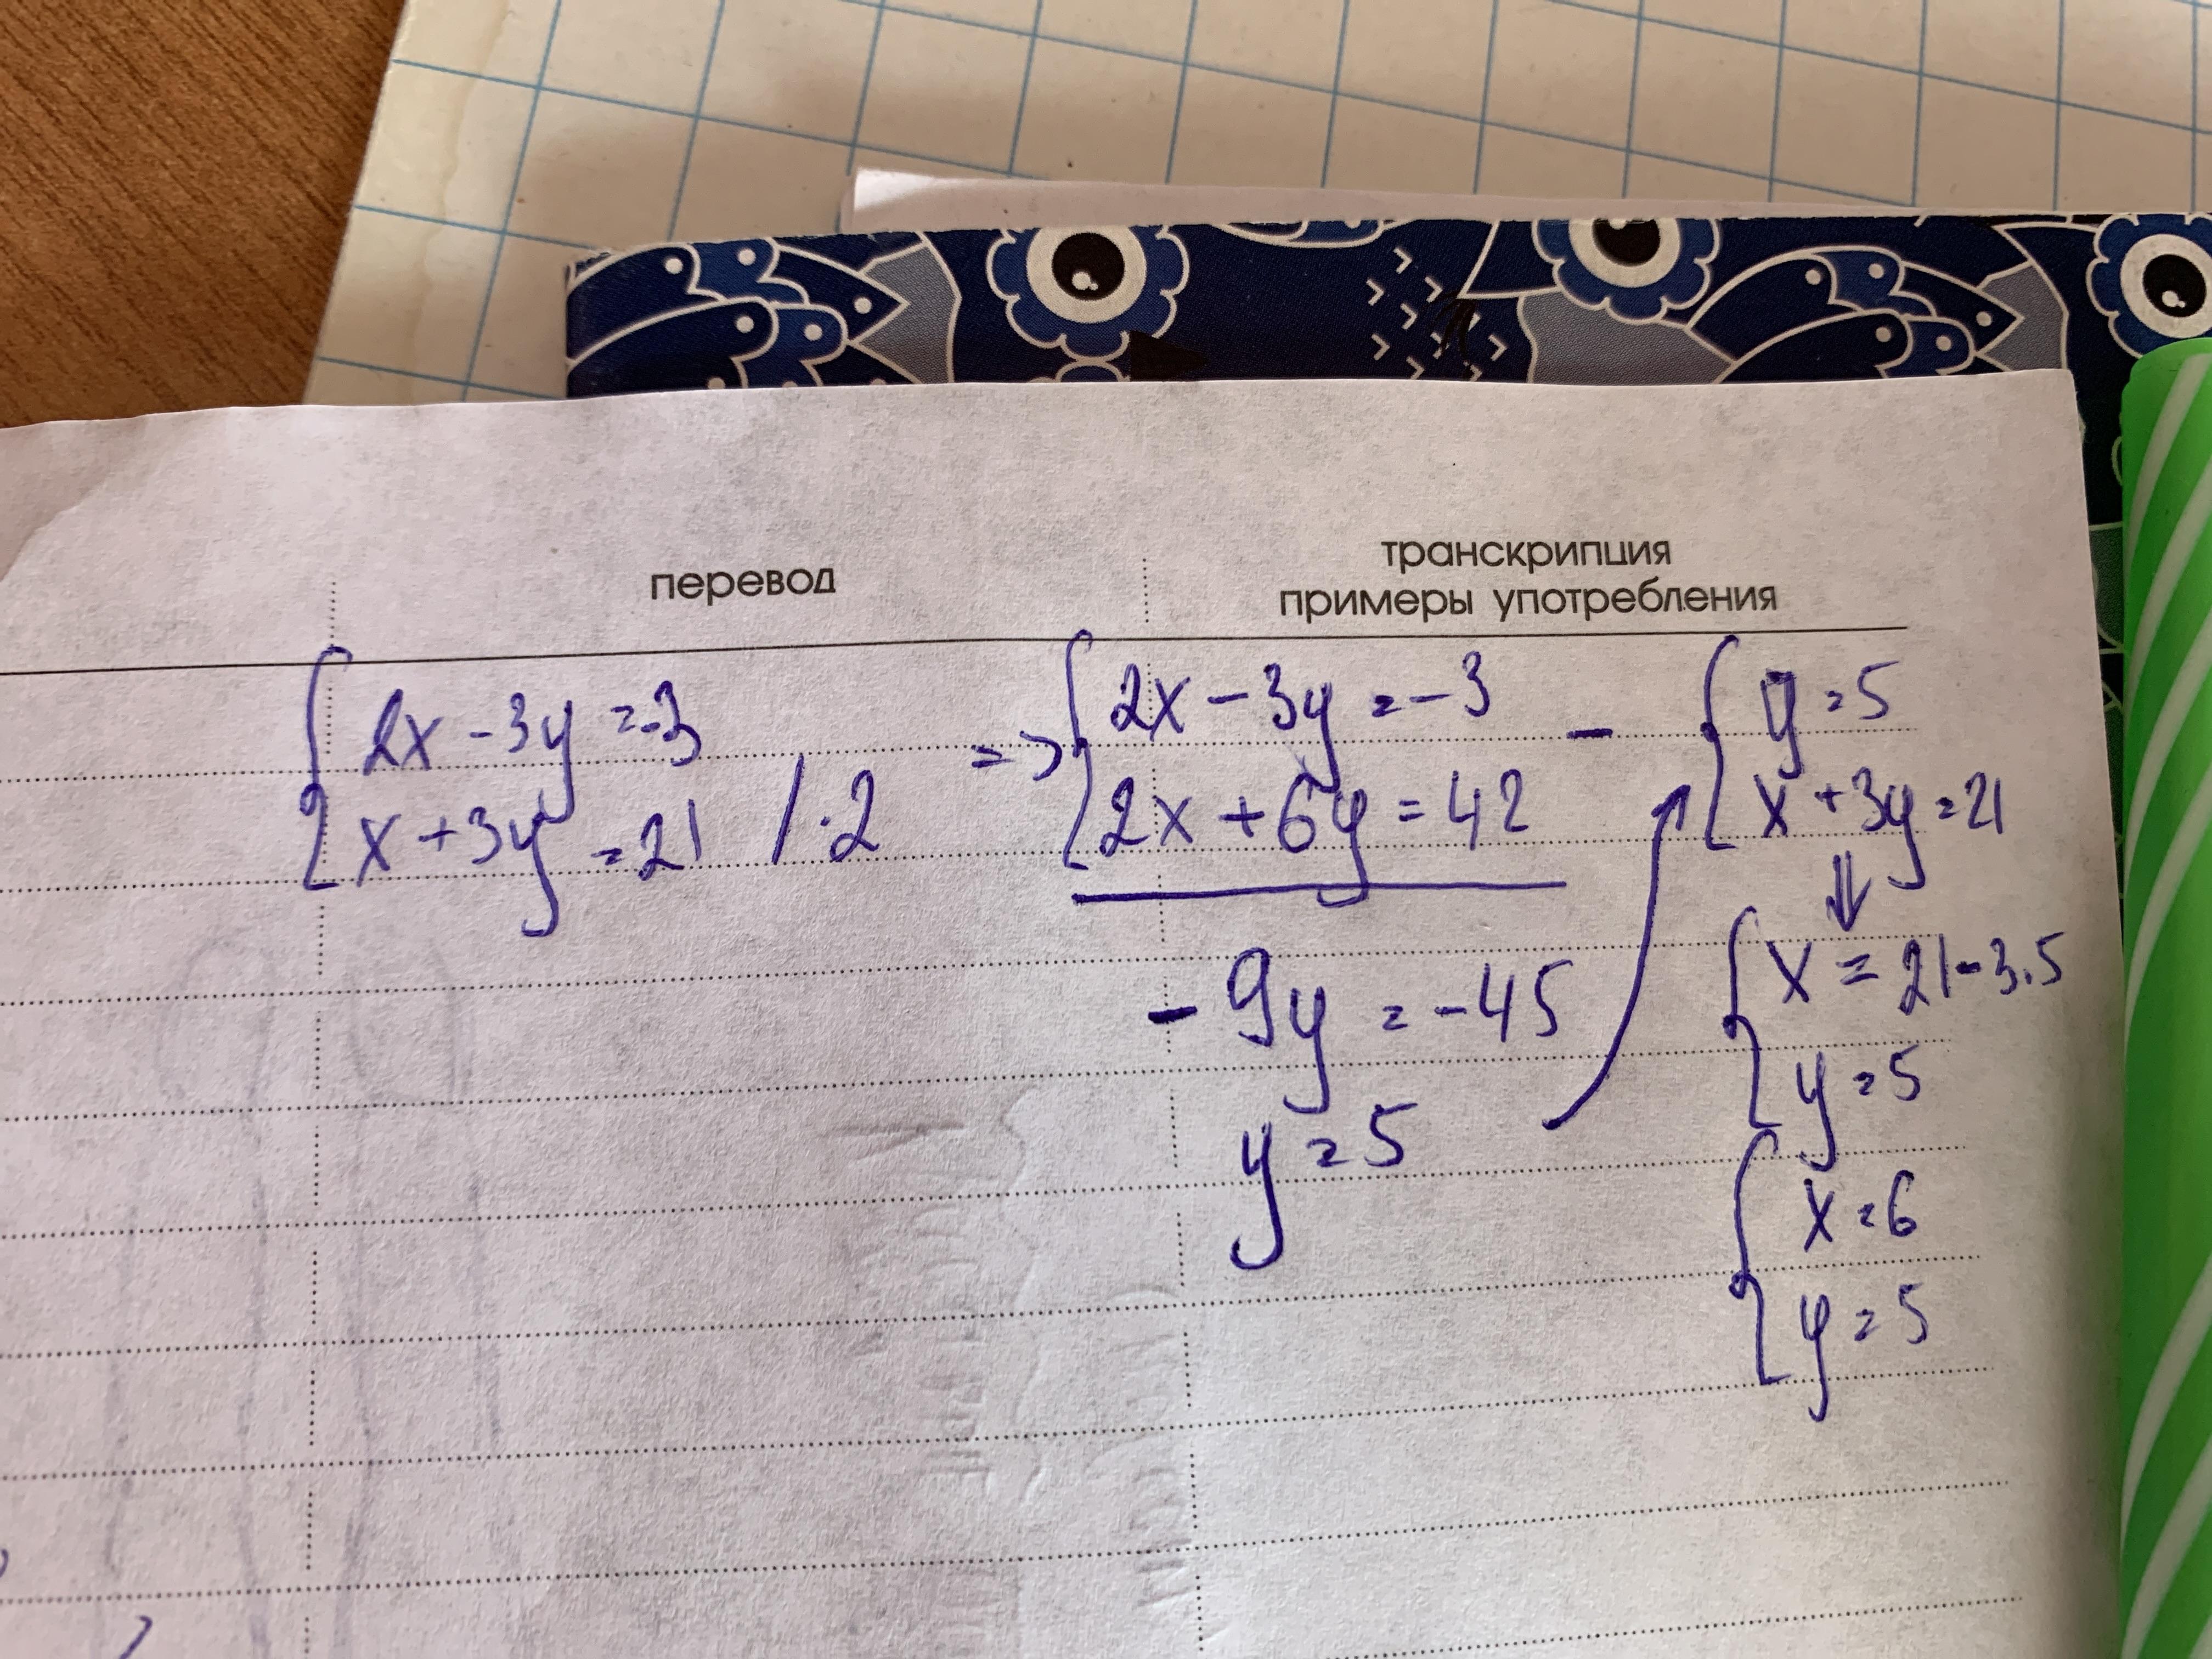 перевод
транскрипция
примеры употребления
2x - 3y = -3
x + 3y = 21 / · 2
=>
2x - 3y = -3
2x + 6y = 42
-
- 9y = -45
y = 5
y = 5
x + 3y = 21
⇓
x = 21 - 3·5
y = 5
x = 6
y = 5